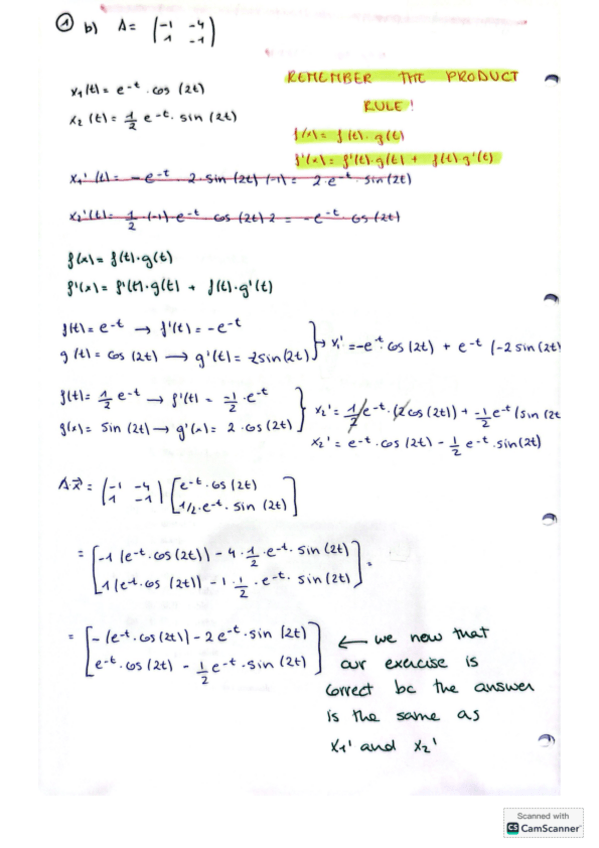 ① b) A= (-1 -4
1 -1)
x₁(t)= e^-t · cos (2t)
x₂(t)= 1/2 e^-t · sin (2t)
REMEMBER THE PRODUCT
RULE!
f(x)= f(t)·g(t)
f'(x)= f'(t)·g(t) + f(t)·g'(t)
x₁'(t)= -e^-t 2·sin (2t) (-1)= 2·e^-t · sin (2t)
x₂'(t)= 1/2 · (-1)·e^-t · cos (2t) 2 = -e^-t · cos (2t)
f(x)= f(t)·g(t)
f'(x)= f'(t)·g(t) + f(t)·g'(t)
f(t)= e^-t → f'(t)= -e^-t
g(t)= cos (2t) → g'(t)= -2sin(2t)
→ x₁' = -e^-t · cos (2t) + e^-t (-2 sin (2t)
f(t)= 1/2 e^-t → f'(t)= -1/2 · e^-t
g(x)= sin (2t) → g'(x)= 2·cos (2t)
x₂' = 1/2 e^-t · (2 cos (2t)) + -1/2 e^-t (sin (2t
x₂' = e^-t · cos (2t) - 1/2 e^-t · sin(2t)
Ax⃗ = (-1 -4
1 -1) [e^-t · cos (2t)
1/2 · e^-t · sin (2t)]
= [-1 (e^-t · cos (2t)) - 4 · 1/2 · e^-t · sin (2t)
1 (e^-t · cos (2t)) - 1 · 1/2 · e^-t · sin (2t)] =
= [-(e^-t · cos (2t)) - 2 e^-t · sin (2t)
e^-t · cos (2t) - 1/2 e^-t · sin (2t)]
← we now that
our exercise is
correct bc the answer
is the same as
x₁' and x₂'
Scanned with
CS CamScanner